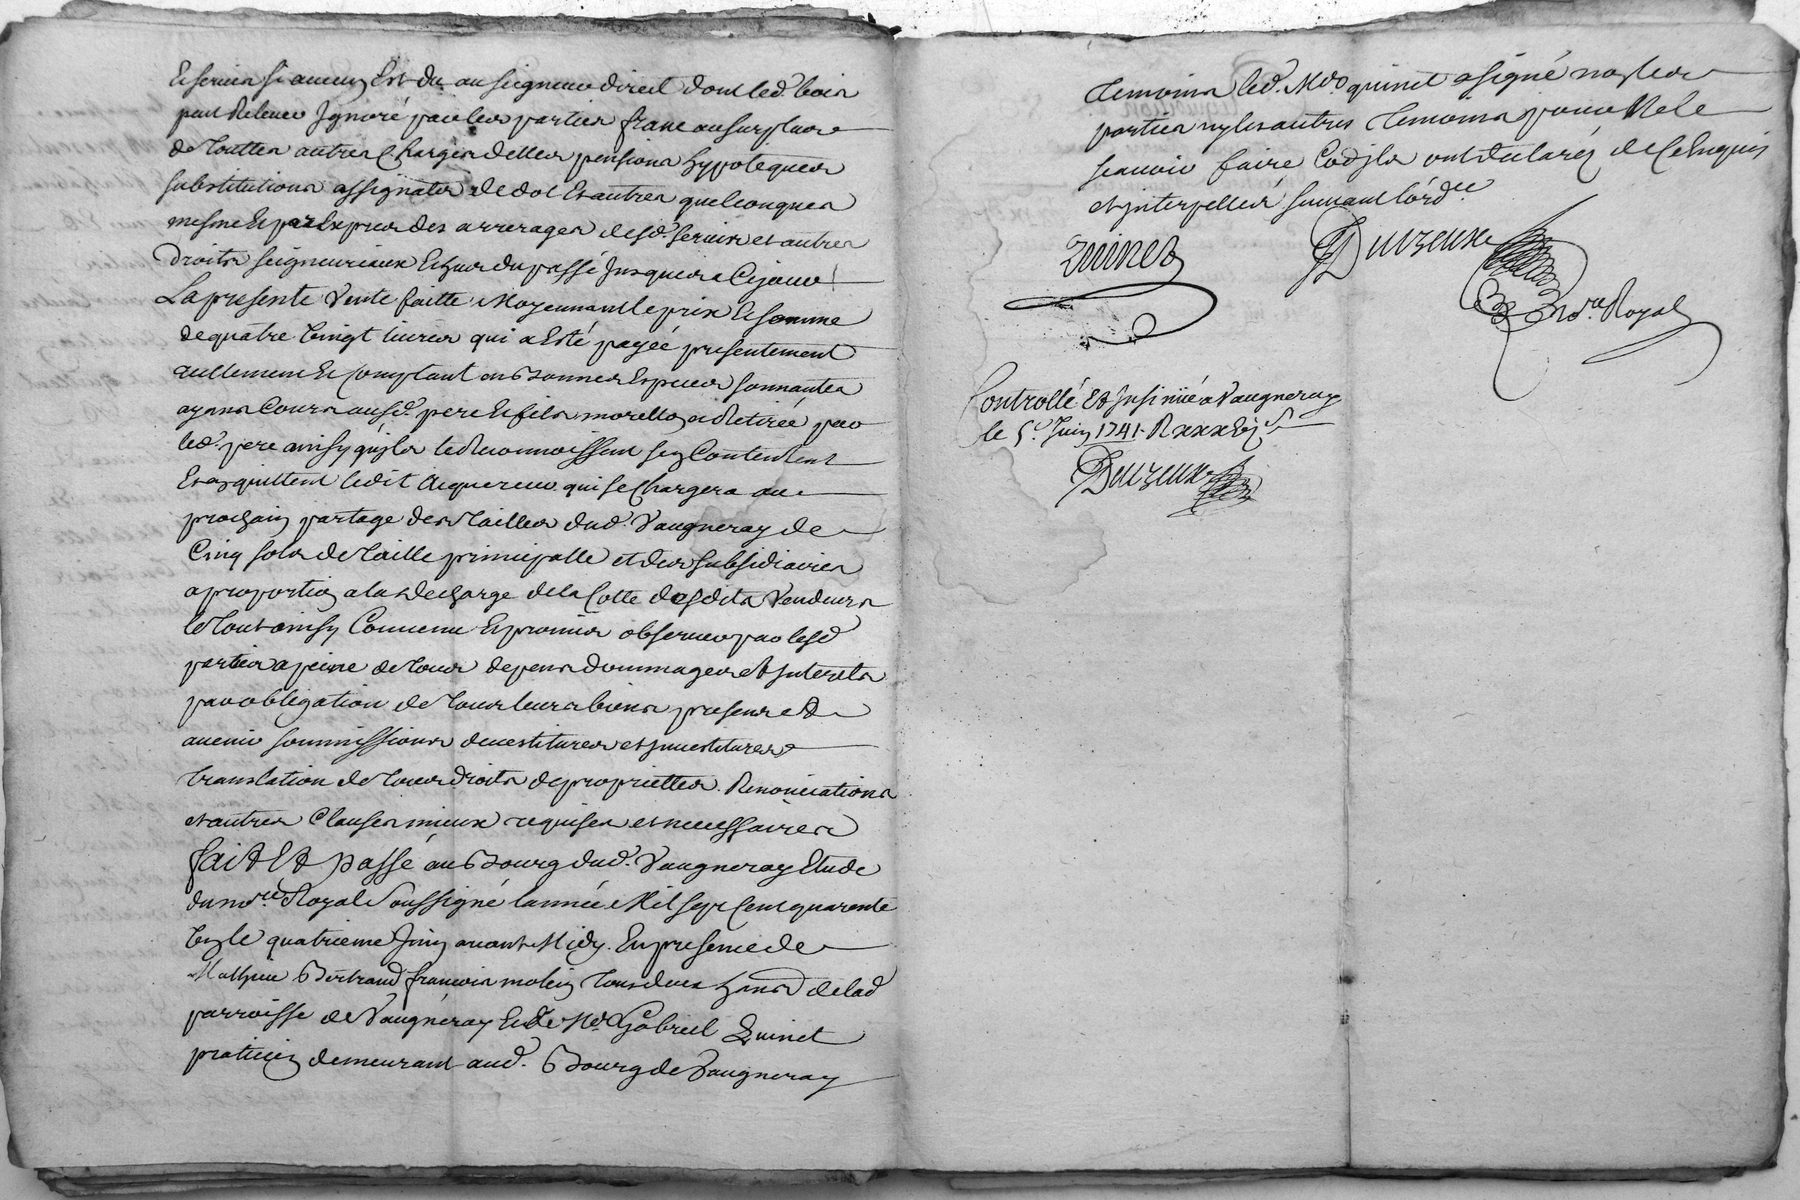 Et servis si aucun Est du au seigneur direct dont led. bois
peut Relever Ignoré par les parties franc au surplus
de touttes autres Charges dettes pensions hypoteques
substitutions assignats de dot Et autres quelconques
mesme Et par Exprès des arrerages desd. servis et autres
Droits seigneuriaux Echus du passé Jusques a Cejour
La presente Vente faitte Moyennant le prix Et somme
de quatre Vingt livres qui a Esté payée presentement
reellement Et Comptant en bonnes Especes sonnantes
ayans Cours ausd. pere Et fils morellon Retirée par
led. pere ainsy qu'ils le Reconnoissent s'en Contentent
Et en quittent ledit acquereur qui se Chargera au
prochain partage des tailles dud. Vaugneray de
Cinq sols de taille principalle et des subsidiaires
a proportion a la decharge de la Cotte desdits Vendeurs
le tout ainsy Convenu Et promis observer par lesd
parties a peine de tous depens dommages et Interets
par obligation de tous leurs biens presens et
avenir soummissions devestitures et investitures
translation de tous droits de propriettes. Renonciations
et autres Clauses mieux requises et necessaires
fait Et passé au Bourg dud. Vaugneray Etude
du no.re Royal Soussigné l'année Mil sept Cent quarente
Un le quatrieme Juin avant Midy. En presence de
Mathieu Bertrand françois molin tous deux de lad
parroisse de Vaugneray Et de Me Gabriel Quinet
praticien demeurant aud. Bourg de Vaugneray
temoins led. Me quinet a signé non les
parties ny les autres temoins pour Ne le
scavoir faire Ce qu'ils ont declaré de Ce Enquis
et interpellés suivant l'ord.ce
Quinet
Duvzeux
no.re Royal
Controllé Et Insinué a Vaugneray
le 5e Juin 1741. R
Duvzeux